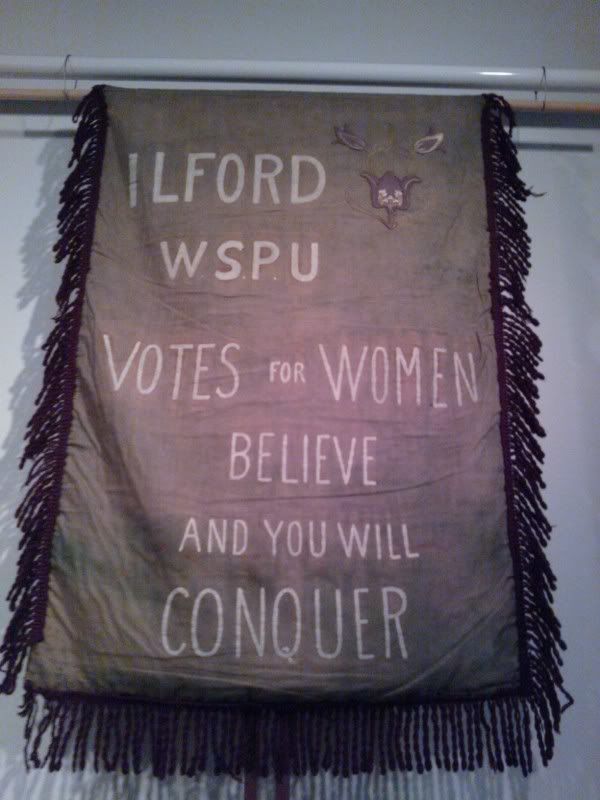 ILFORD
W.S.P.U
VOTES FOR WOMEN
BELIEVE
AND YOU WILL
CONQUER